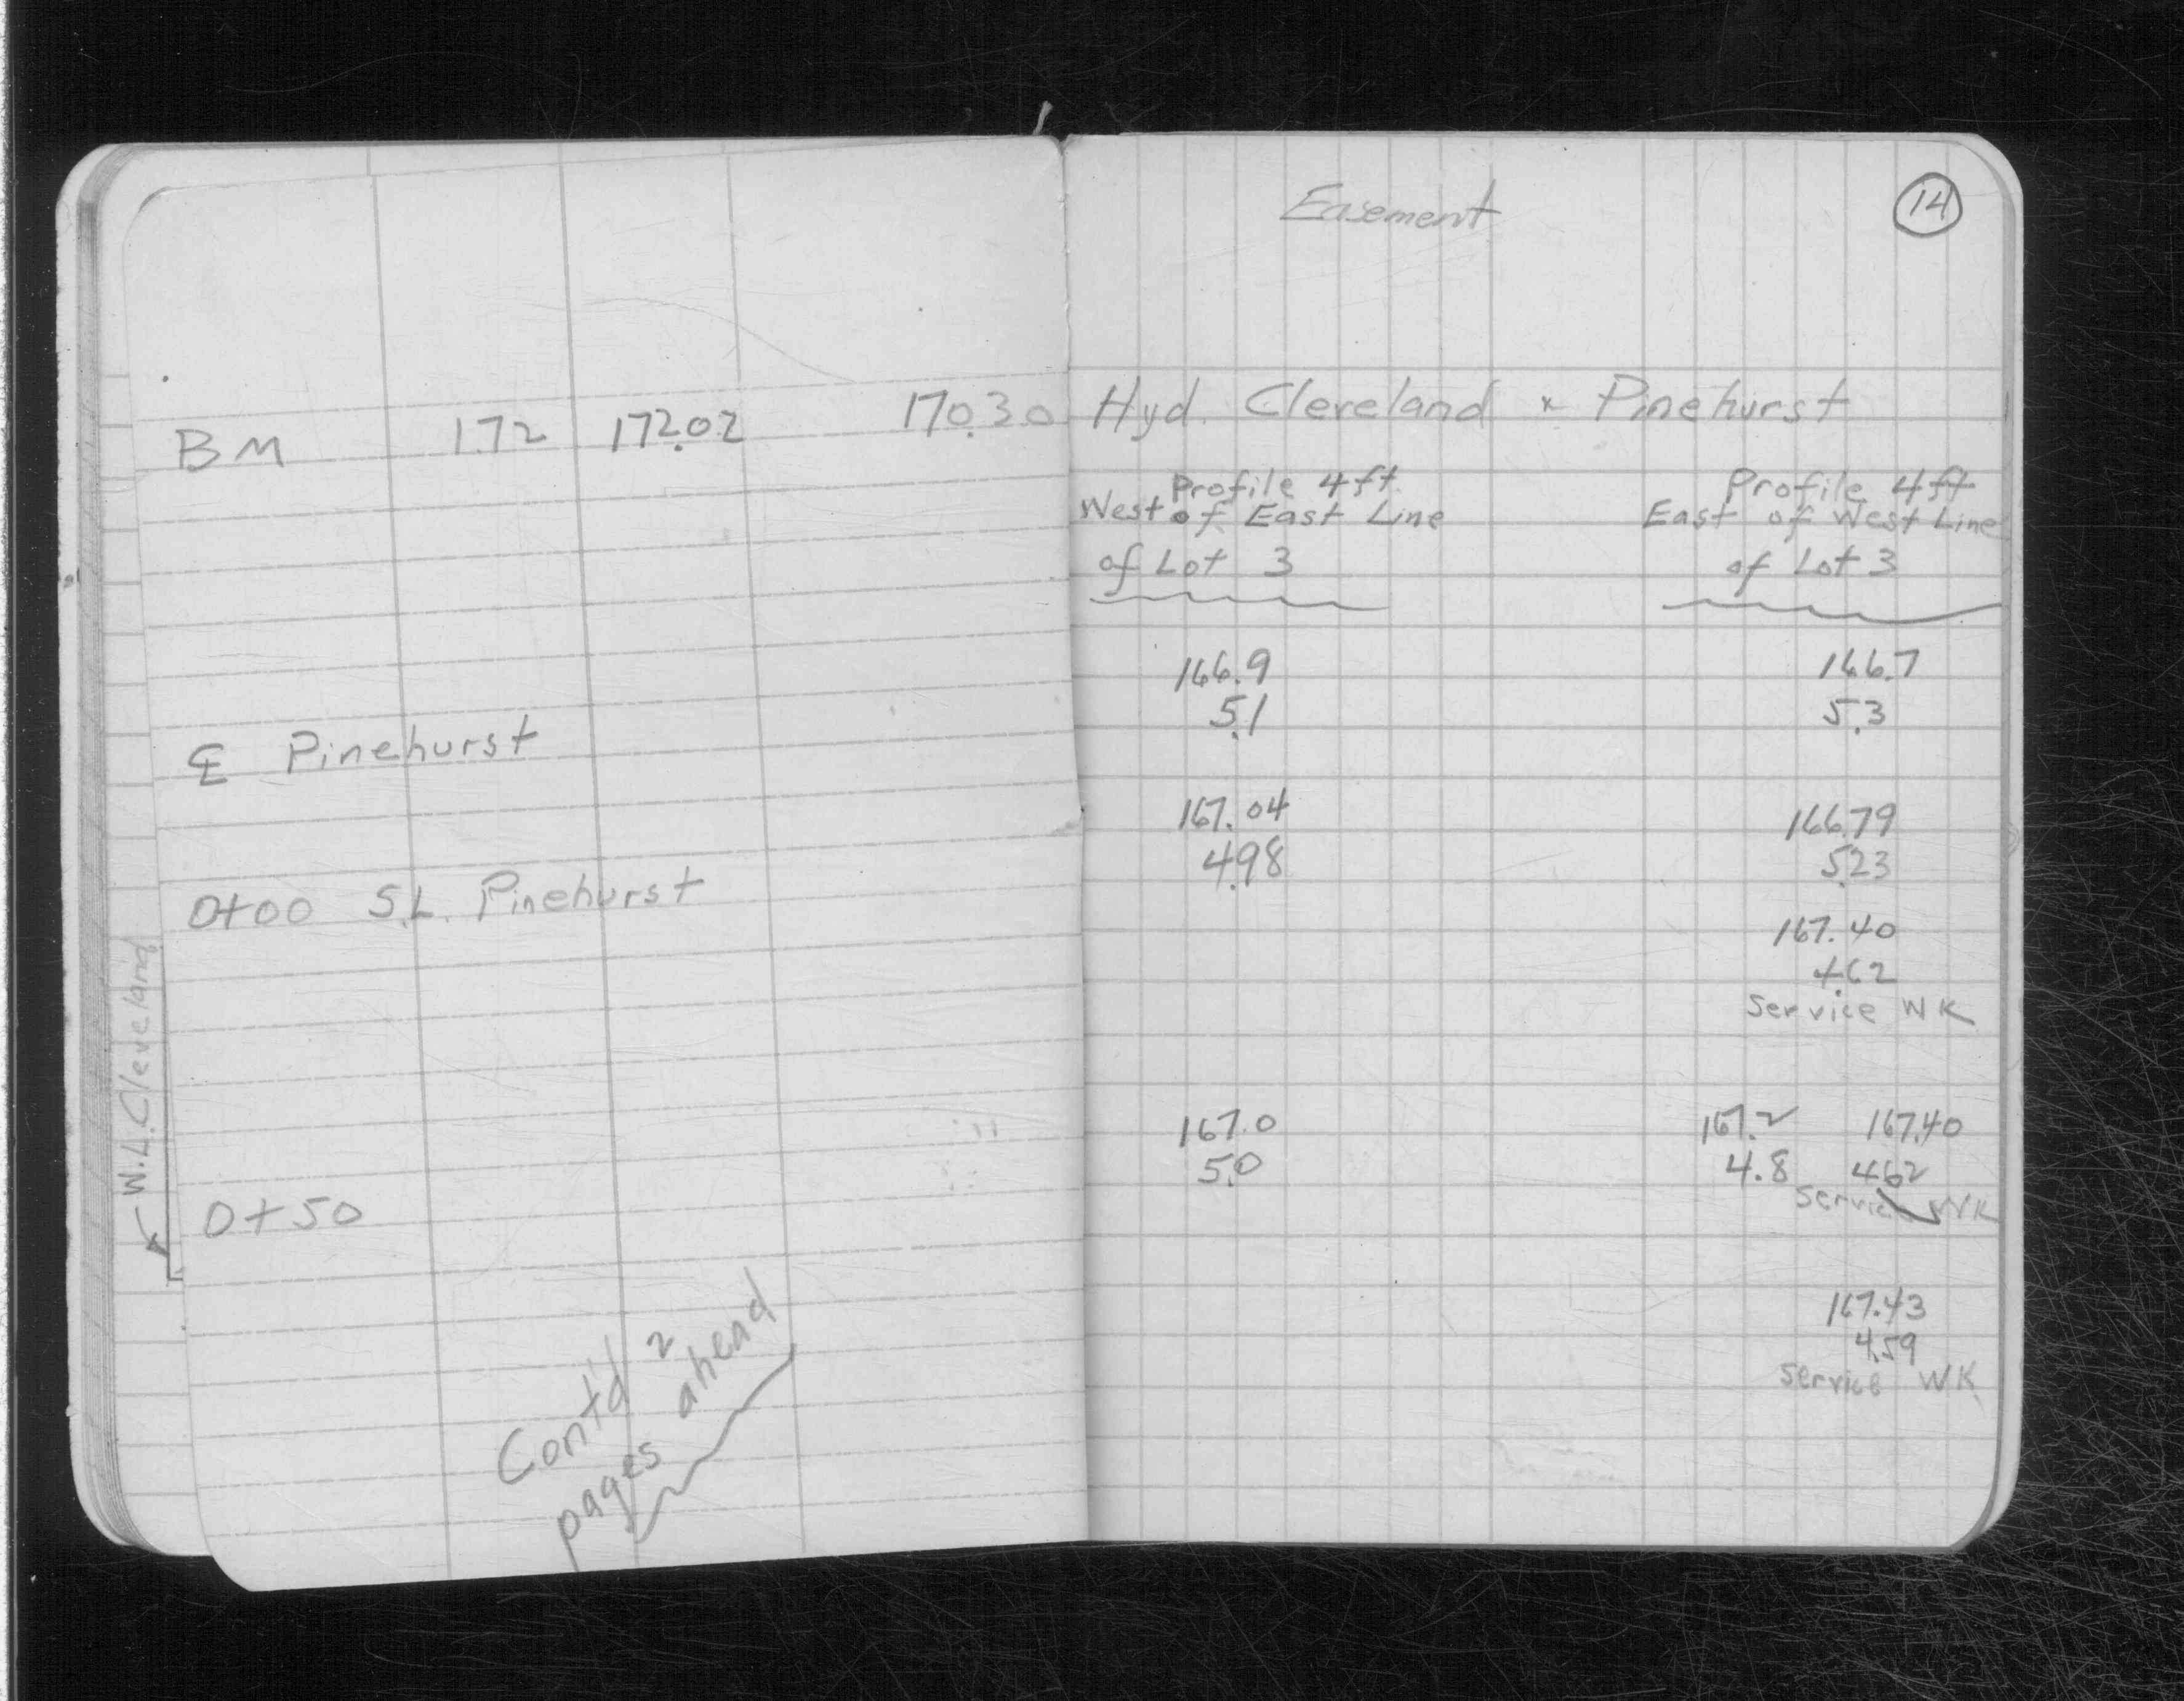 BM 1.72 172.02 170.30
℄ Pinehurst
0+00 S.L. Pinehurst
W.L. Cleveland
0+50
Cont'd 2
pages ahead
Easement
14
Hyd. Cleveland x Pinehurst
Profile 4ft.
West of East Line
of Lot 3
Profile 4ft
East of West Line
of Lot 3
166.9 166.7
5.1 5.3
167.04 166.79
4.98 5.23
167.40
4.62
Service WK
167.0 167.2 167.40
5.0 4.8 4.62
Service WK
167.43
4.59
Service WK